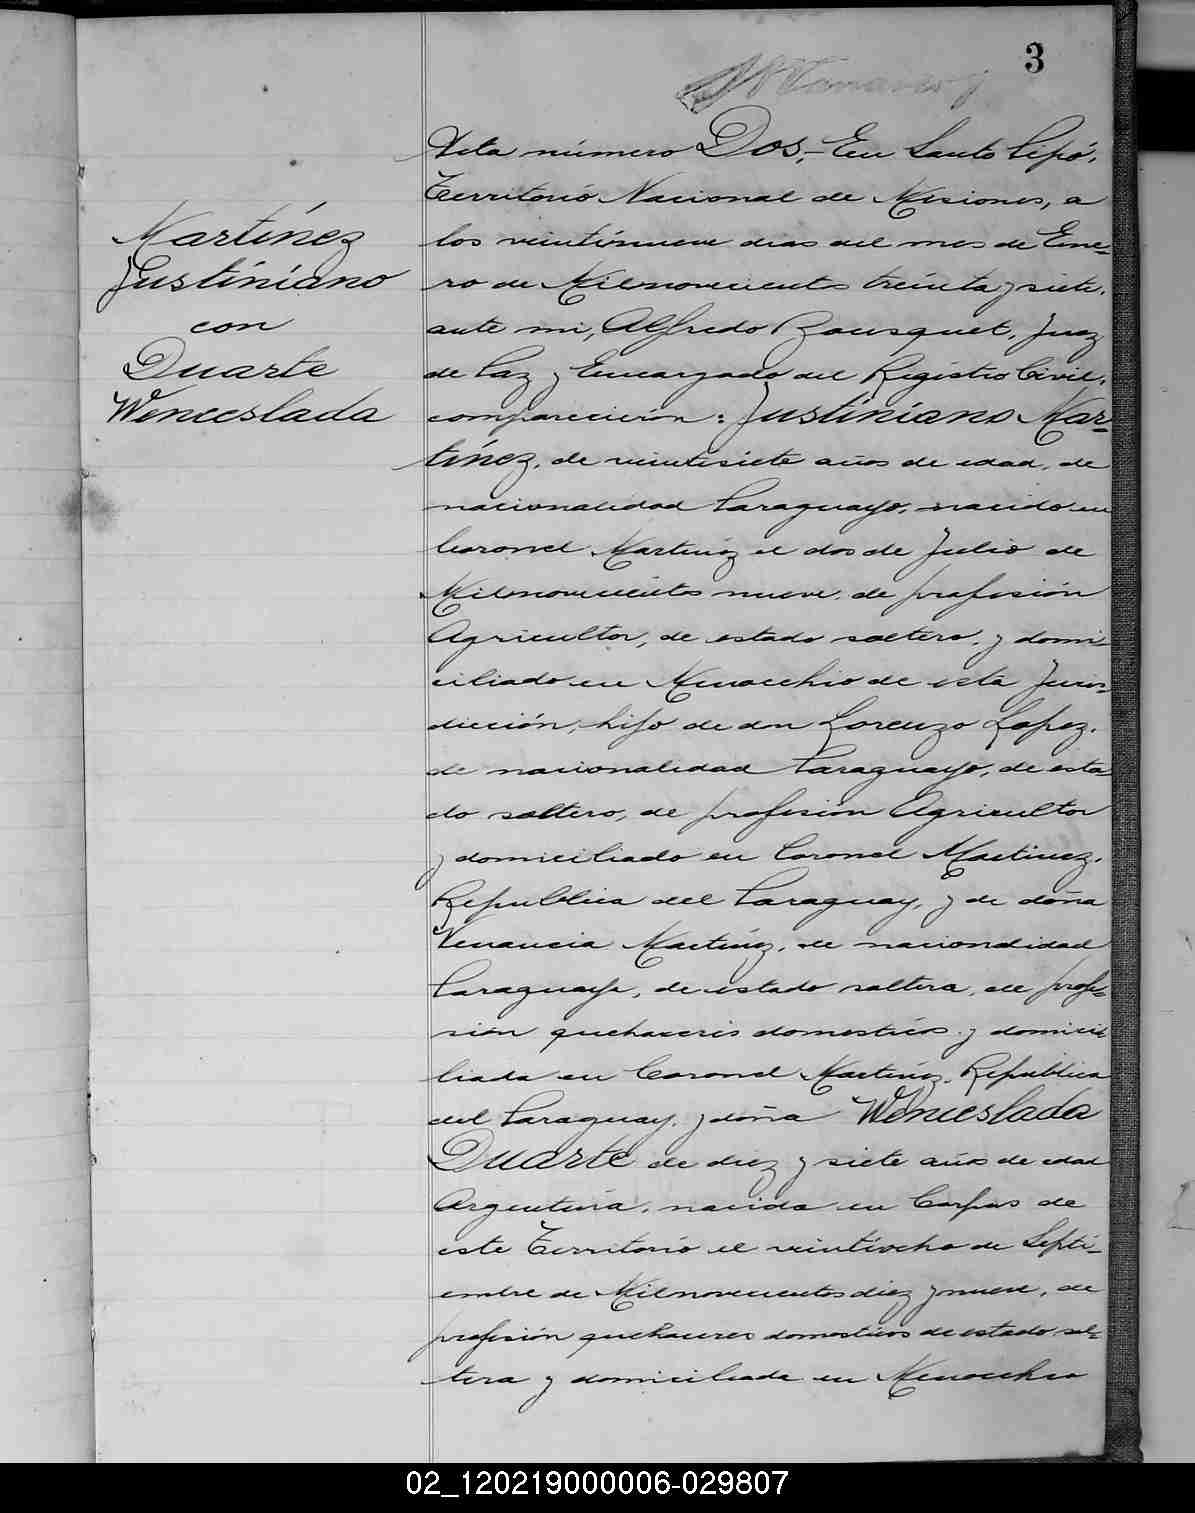 3
Martínez
Justiniano
con
Duarte
Wenceslada
Acta número Dos.- En Santo Pipó,
Territorio Nacional de Misiones, a
los veintinueve dias del mes de Ene-
ro de Milnovecientos treinta y siete,
ante mi, Alfredo Bousquet, Juez
de Paz y Encargado del Registro Civil,
comparecieron: Justiniano Mar-
tínez, de veintisiete años de edad, de
nacionalidad Paraguayo, nacido en
Coronel Martinez el dos de Julio de
Milnovecientos nueve, de profesión
Agricultor, de estado soltero, y domi-
ciliado en Menocchio de esta Juris-
dicción, hijo de don Lorenzo Lopez,
de nacionalidad Paraguayo, de esta
do soltero, de profesion Agricultor
y domiciliado en Coronel Martinez,
Republica del Paraguay, y de doña
Venancia Martinez, de nacionalidad
Paraguaya, de estado soltera, de profe-
sión quehaceres domesticos y domicili
liada en Coronel Martinez, Republica
del Paraguay, y doña Wenceslada
Duarte de diez y siete años de edad
Argentina, nacida en Corpus de
este Territorio el veintiocho de Septi-
embre de Milnovecientos diez y nueve, de
profesión quehaceres domesticos de estado sol-
tera y domiciliada en Menocchio
02_120219000006-029807